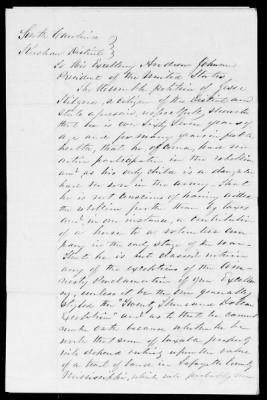 South Carolina
Kershaw District
To His Excellency Andrew Johnson
President of the United States
The humble petition of Jesse
a citizen of the District and
State aforesaid, respectfully sheweth
that he is over Sixty Seven years of
age and for many years in feeble
health, that he of course, has no
active participation in the rebellion
and as his only child is a daughter
had no son in the army. That
he is not conscious of having aided
the rebellion further than by taxes
and in one instance, a contribution
of a horse to a volunteer com
pany in the early stage of the war
That he is not classed within
any of the exceptions of the Am
nesty Proclamation of your Excellen
cy, unless it be the one generally
styled the "Twenty Thousand Dollar
Exception" and as to that he cannot
make oath because whether he be
worth that sum of taxable property
will depend entirely upon the value
of a tract of land in Lafayette County
Mississippi, which will probably